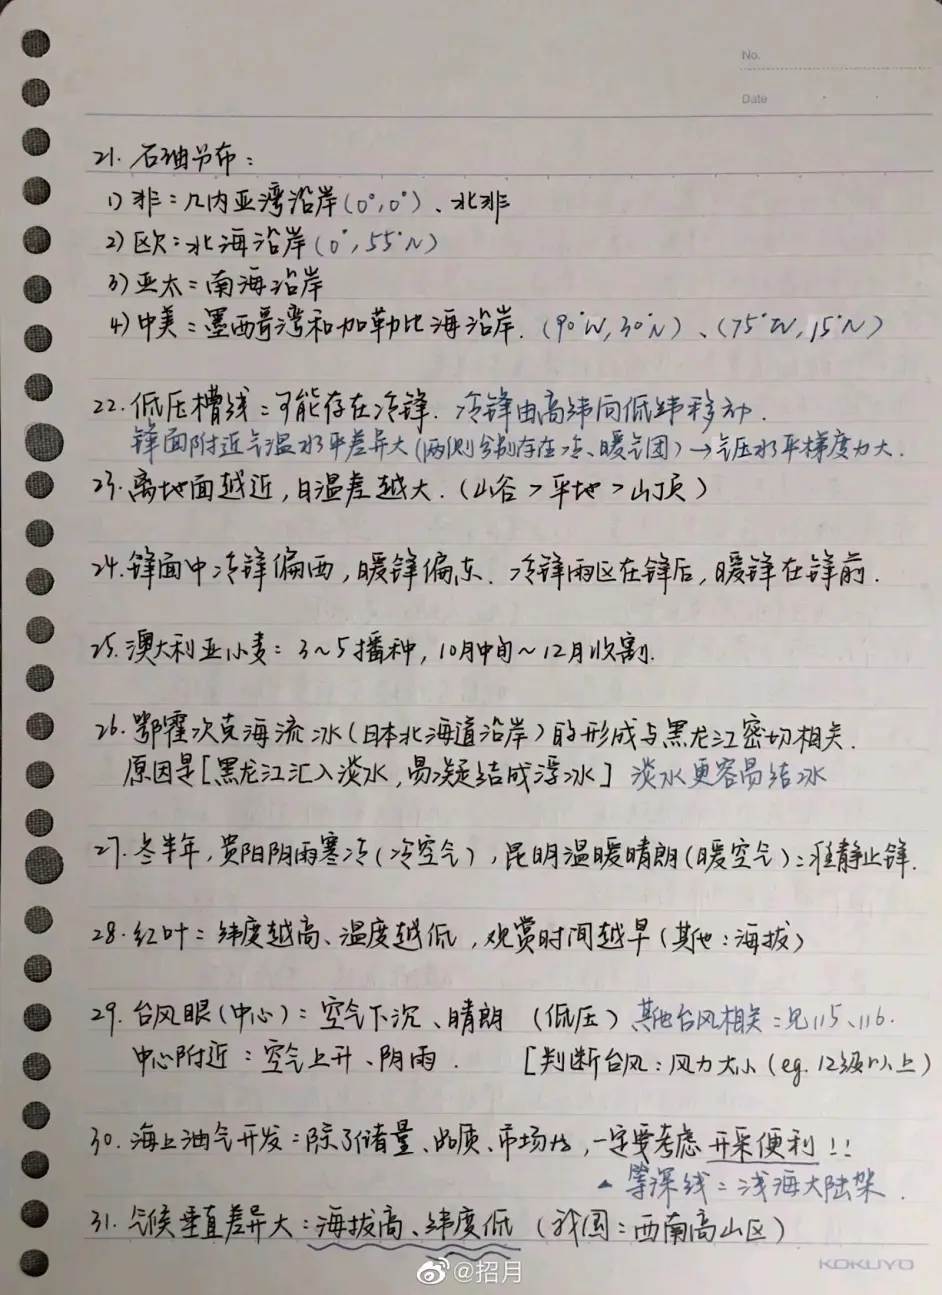 No.
Date
21. 石油分布：
1) 非：几内亚湾沿岸(0°,0°)、北非
2) 欧：北海沿岸(0°,55°N)
3) 亚太：南海沿岸
4) 中美：墨西哥湾和加勒比海沿岸.(90°W,30°N)、(75°W,15°N)
22. 低压槽线：可能存在冷锋. 冷锋由高纬向低纬移动.
锋面附近气温水平差异大(两侧分别存在冷、暖气团)→气压水平梯度力大.
23. 离地面越近,日温差越大.(山谷>平地>山顶)
24. 锋面中冷锋偏西,暖锋偏东. 冷锋雨区在锋后,暖锋在锋前.
25. 澳大利亚小麦：3~5播种,10月中旬~12月收割.
26. 鄂霍次克海流冰(日本北海道沿岸)的形成与黑龙江密切相关.
原因是[黑龙江汇入淡水,易凝结成浮冰] 淡水更容易结冰
27. 冬半年,贵阳阴雨寒冷(冷空气),昆明温暖晴朗(暖空气)：准静止锋.
28. 红叶：纬度越高、温度越低,观赏时间越早(其他：海拔)
29. 台风眼(中心)：空气下沉、晴朗 (低压) 其他台风相关：见115、116.
中心附近：空气上升、阴雨. [判断台风：风力大小(eg.12级以上)
30. 海上油气开发：除了储量、品质、市场外,一定要考虑开采便利!!
▲ 等深线：浅海大陆架.
31. 气候垂直差异大：海拔高、纬度低 (我国：西南高山区)
@招月
KOKUYO